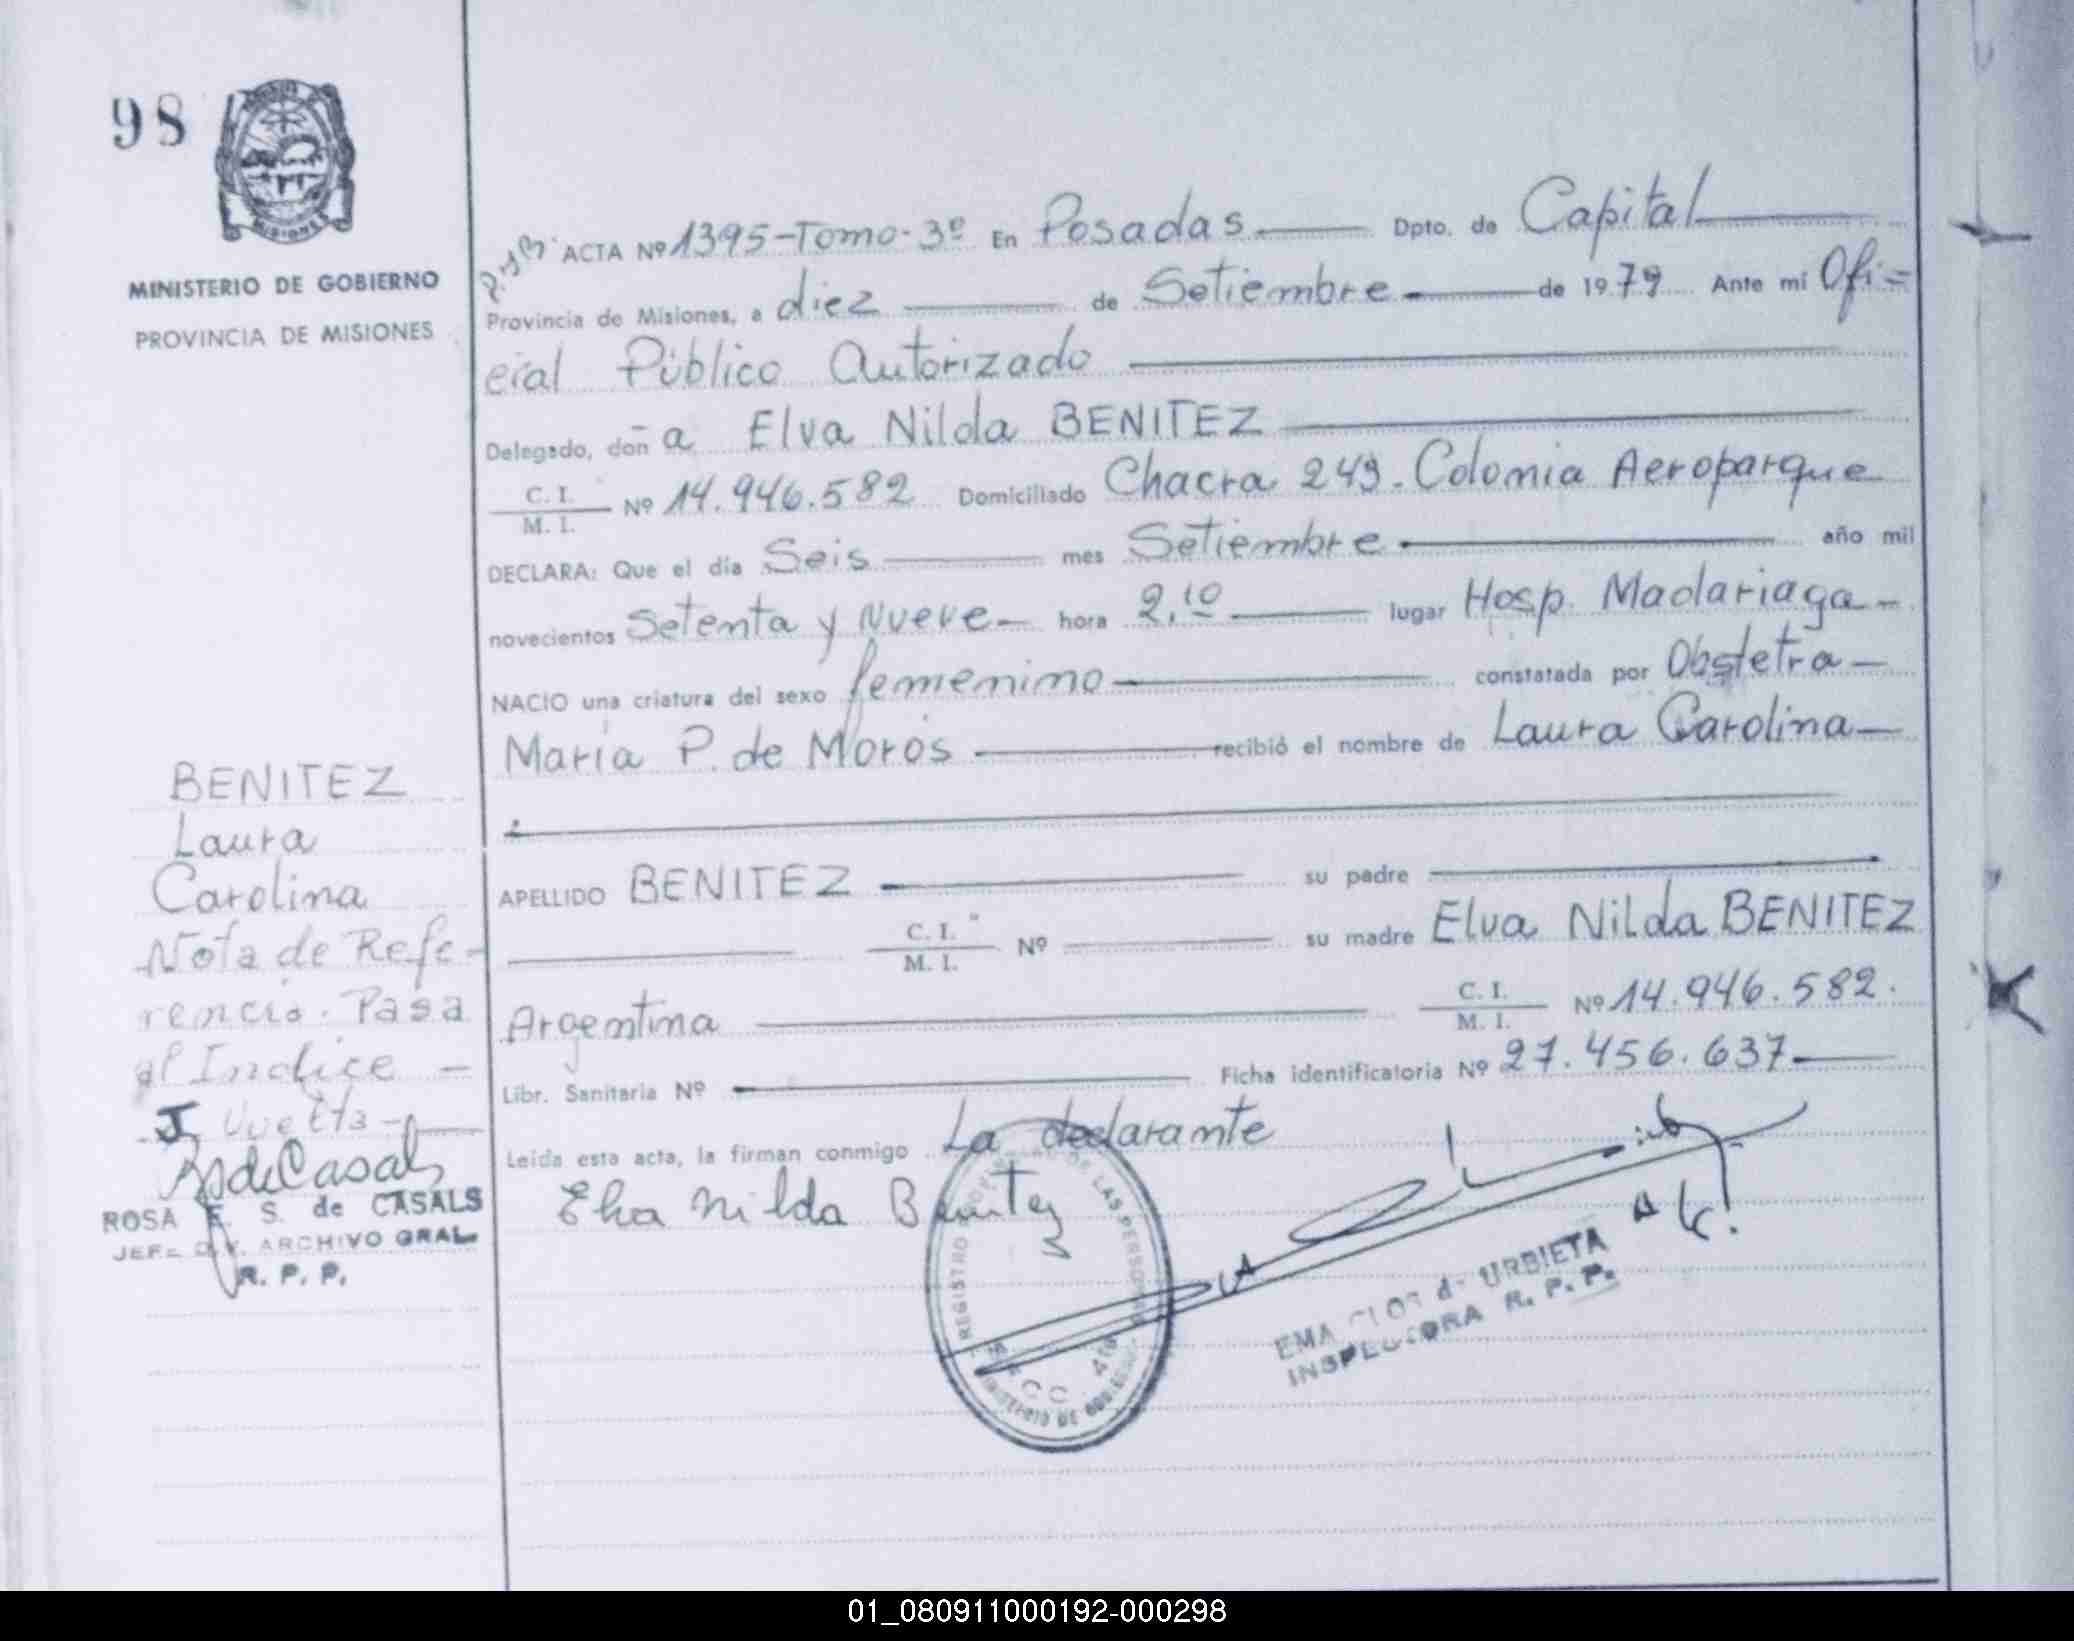 98
MISIONES
MINISTERIO DE GOBIERNO
PROVINCIA DE MISIONES
ACTA Nº 1395-Tomo-3º En Posadas Dpto. de Capital
Provincia de Misiones, a diez de Setiembre de 1979 Ante mí Ofi=
cial Público Autorizado
Delegado, doña Elva Nilda BENITEZ
C. I.
M. I. Nº 14.946.582 Domiciliado Chacra 249. Colonia Aeroparque
DECLARA: Que el día Seis mes Setiembre año mil
novecientos Setenta y Nueve hora 2,10 lugar Hosp. Madariaga
NACIO una criatura del sexo femenino constatada por Obstetra
María P. de Moros recibió el nombre de Laura Carolina
APELLIDO BENITEZ su padre
C. I.
M. I. Nº su madre Elva Nilda BENITEZ
Argentina C. I.
M. I. Nº 14.946.582.
Libr. Sanitaria Nº Ficha identificatoria Nº 27.456.637
Leída esta acta, la firman conmigo La declarante
Elva Nilda Benitez
BENITEZ
Laura
Carolina
Nota de Refe-
rencia. Pasa
al Indice
Vuelta
RSdeCasals
ROSA E. S. de CASALS
JEFE DIV. ARCHIVO GRAL.
R. P. P.
REGISTRO PROVINCIAL DE LAS PERSONAS
MINISTERIO DE GOBIERNO
de URBIETA
INSPECTORA R. P. P.
01_080911000192-000298